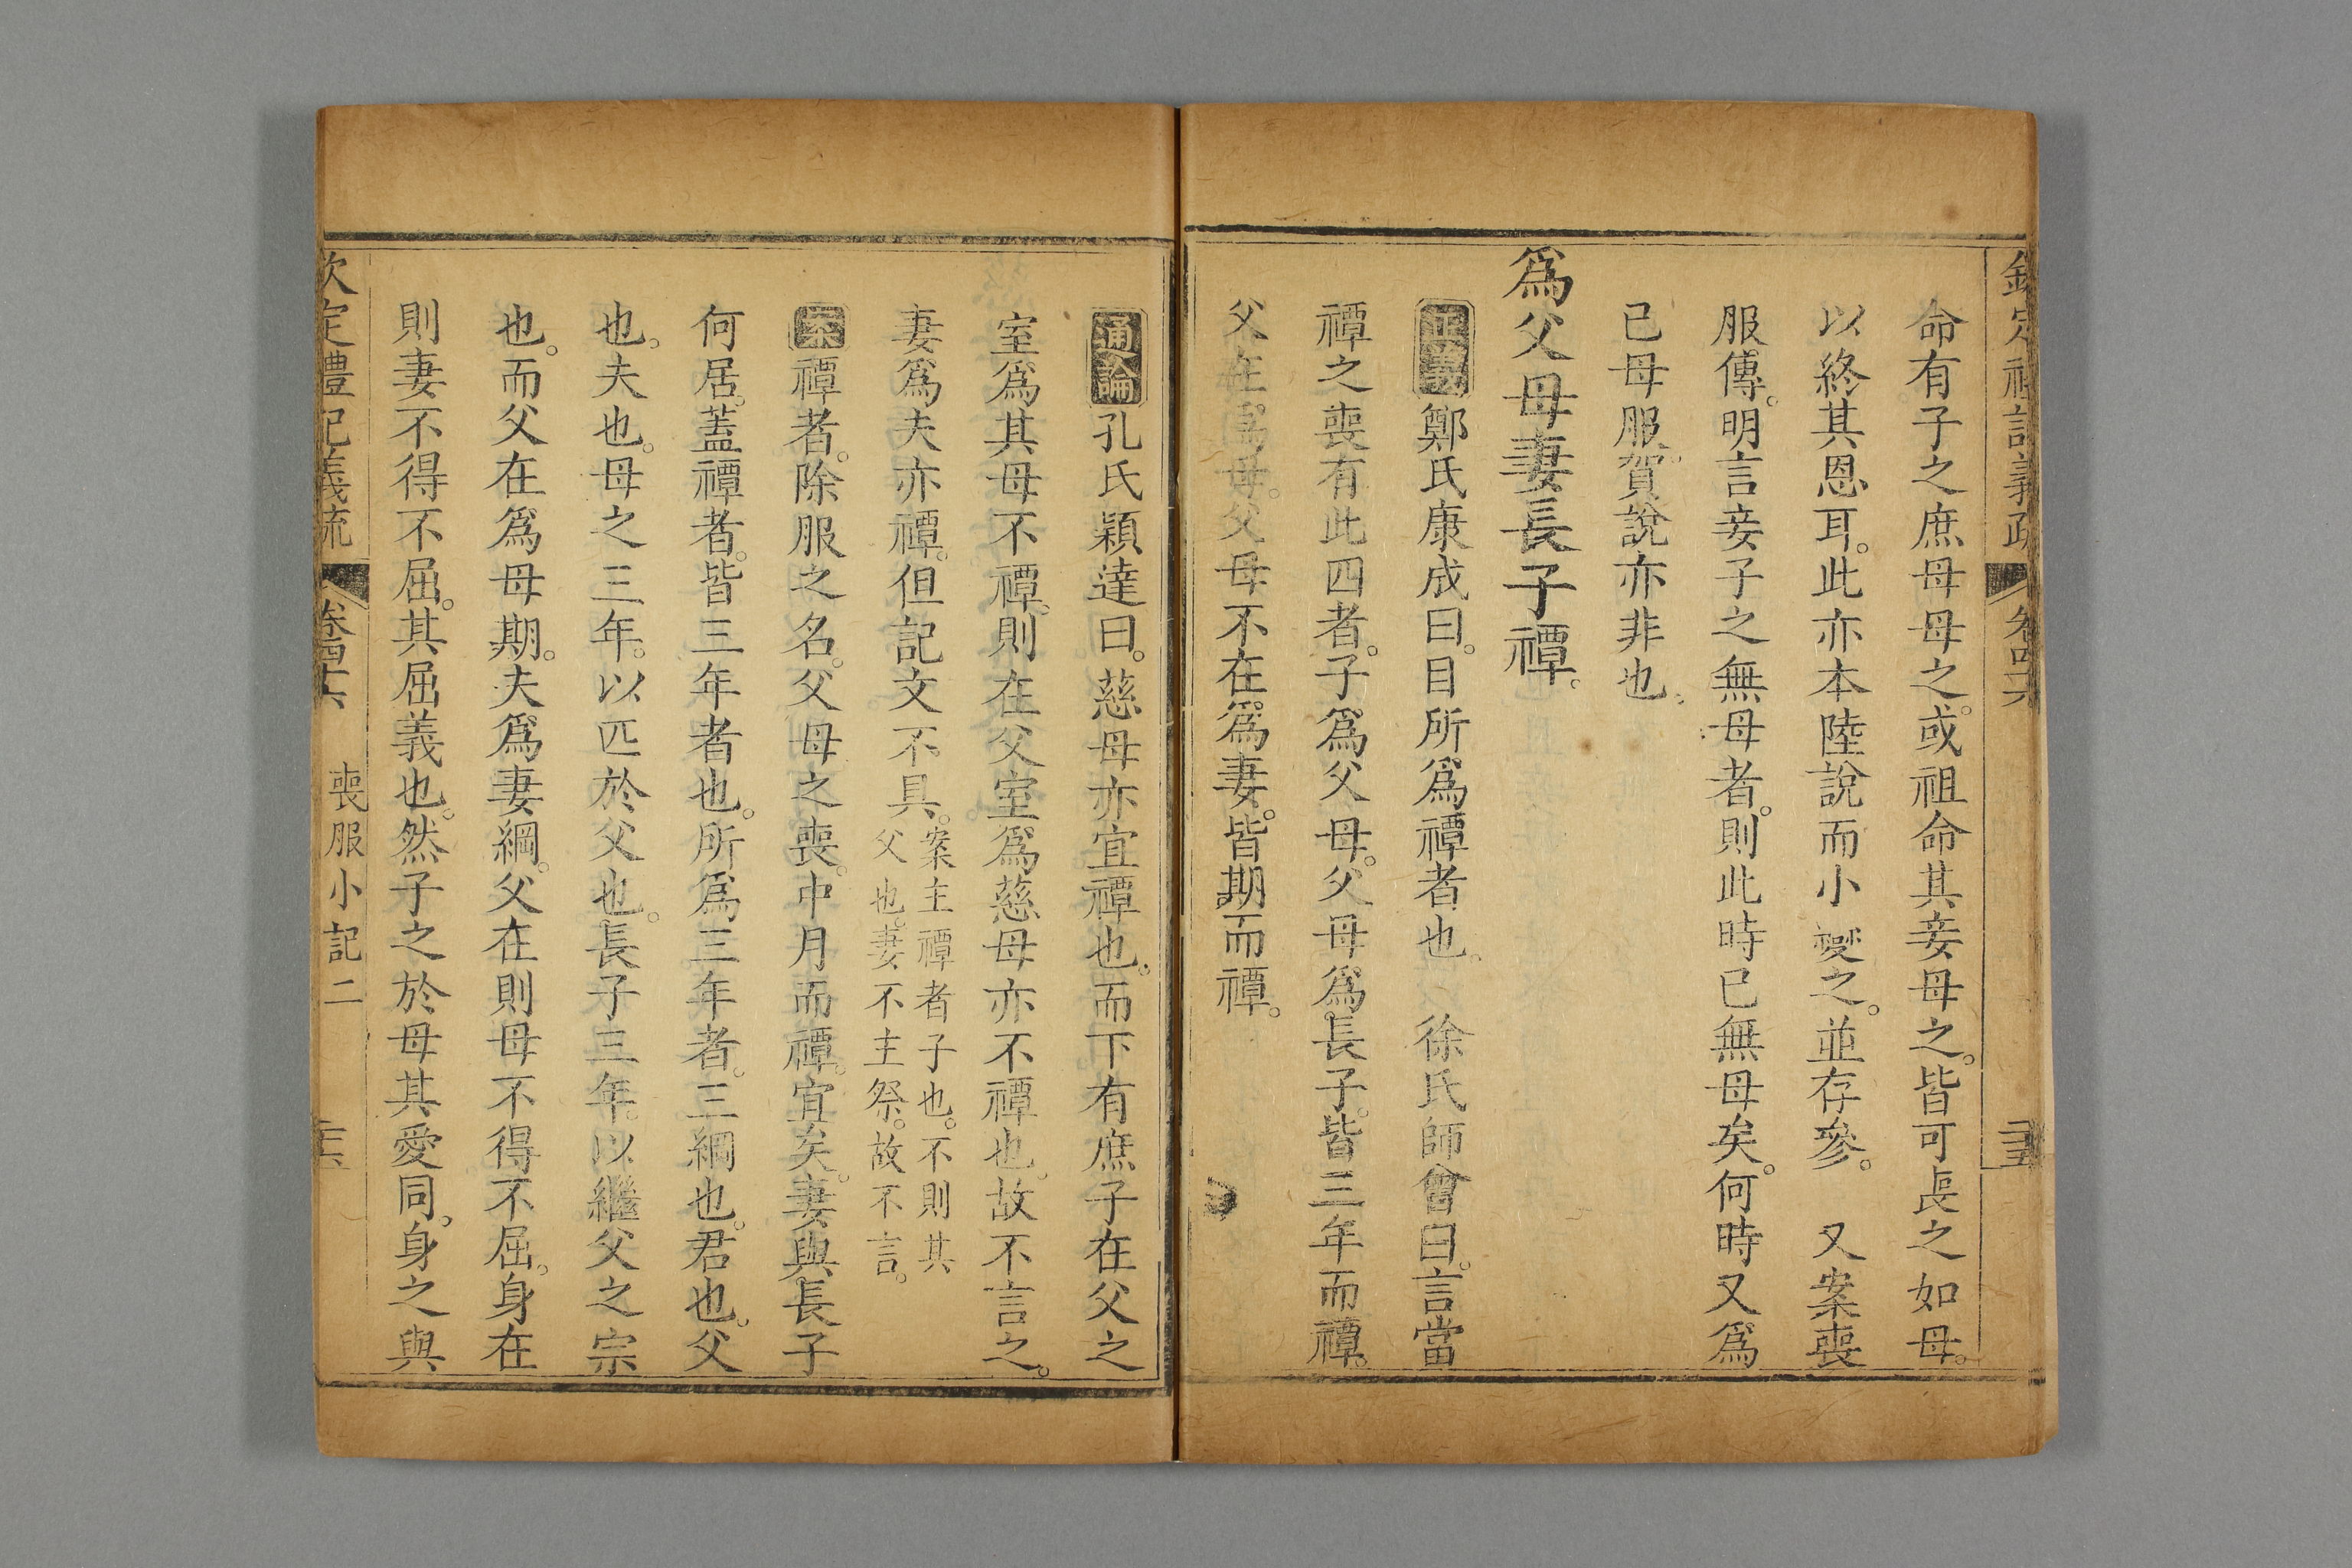 欽定禮記義疏 卷四十六 二十五
命有子之庶母母之。或祖命其妾母之。皆可長之如母。
以終其恩耳。此亦本陸說而小變之。並存參。 又案喪
服傳。明言妾子之無母者。則此時已無母矣。何時又爲
己母服。賀說亦非也。
爲父母妻長子禫。
正義鄭氏康成曰。目所爲禫者也。 徐氏師曾曰。言當
禫之喪有此四者。子爲父母。父母爲長子。皆三年而禫。
父在。爲母。父母不在。爲妻。皆期而禫。
通論孔氏穎達曰。慈母亦宜禫也。而下有庶子在父之
室爲其母不禫。則在父室爲慈母亦不禫也。故不言之。
妻爲夫亦禫。但記文不具。案主禫者子也。不則其
父也。妻不主祭。故不言。
案禫者。除服之名。父母之喪。中月而禫。宜矣。妻與長子
何居。蓋禫者。皆三年者也。所爲三年者。三綱也。君也。父
也。夫也。母之三年。以匹於父也。長子三年。以繼父之宗
也。而父在爲母期。夫爲妻綱。父在則母不得不屈。身在
則妻不得不屈。其屈義也。然子之於母其愛同。身之與
欽定禮記義疏 卷四十六 喪服小記二